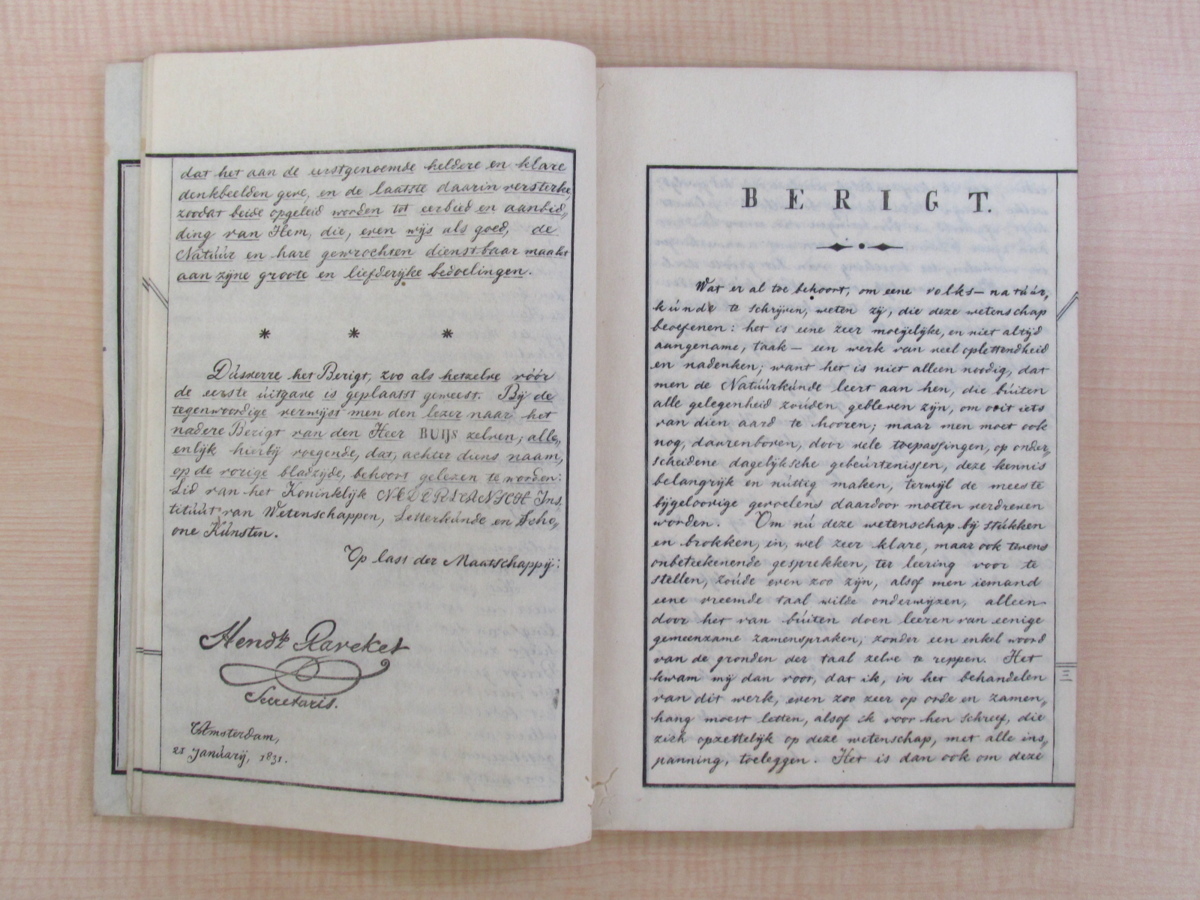 dat het aan de eerstgenoemde heldere en klare
denkbeelden geve, en de laatste daarin versterke,
zoodat beide opgeleid worden tot eerbied en aanbid„
ding van Hem, die, even wijs als goed, de
Natúúr en hare gewrochten dienstbaar maakt
aan zijne groote en liefderijke bedoelingen.
* * *
Dúsverre het Berigt, zoo als hetzelve vóór
de eerste úitgave is geplaatst geweest. Bij de
tegenwoordige verwijst men den lezer naar het
nadere Berigt van den Heer BUIJS zelven; alle„
enlijk hierbij voegende, dat, achter diens naam,
op de vorige bladzijde, behoort gelezen te worden:
Lid van het Koninklijk NEDERLANSCH Ins„
titúút van Wetenschappen, Letterkúnde en Scho„
one Kúnsten.
Op last der Maatschappij:
Hendk Ravekes
Secretaris.
Amsterdam,
21 Janúarij, 1831.
BERIGT.
Wat er al toe behoort, om eene volks-natúúr,
kúnde te schrijven, weten zij, die deze wetenschap
beoefenen: het is eene zeer moeijelijke, en niet altijd
aangename, taak — een werk van veel oplettendheid
en nadenken; want het is niet alleen noodig, dat
men de Natúúrkúnde leert aan hen, die búiten
alle gelegenheid zoúden gebleven zijn, om ooit iets
van dien aard te hooren; maar men moet ook
nog, daarenboven, door vele toepassingen, op onder„
scheidene dagelijksche gebeúrtenissen, deze kennis
belangrijk en núttig maken, terwijl de meeste
bijgeloovige gevoelens daardoor moeten verdreven
worden. Om nú deze wetenschap bij stúkken
en brokken, in, wel zeer klare, maar ook tevens
onbeteekenende gesprekken, ter leering voor te
stellen, zoúde even zoo zijn, alsof men iemand
eene vreemde taal wilde onderwijzen, alleen
door het van búiten doen leeren van eenige
gemeenzame zamenspraken, zonder een enkel woord
van de gronden der taal zelve te reppen. Het
kwam mij dan voor, dat ik, in het behandelen
van dit werk, even zoo zeer op orde en zamen„
hang moest letten, alsof ik voor hen schreef, die
zich opzettelijk op deze wetenschap, met alle ins„
panning, toeleggen. Het is dan ook om deze